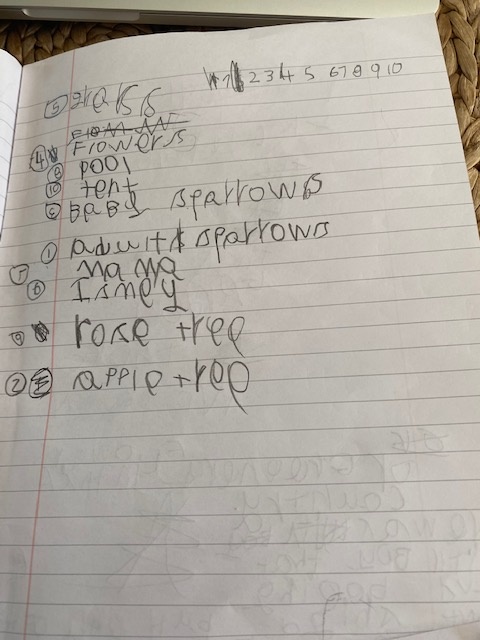 1 2 3 4 5 6 7 8 9 10
5 grass
4 Flowers
8 pool
10 tent
Baby sparrows
1 adults sparrows
7 Mama
6 Ismey
9 rose tree
2 apple tree